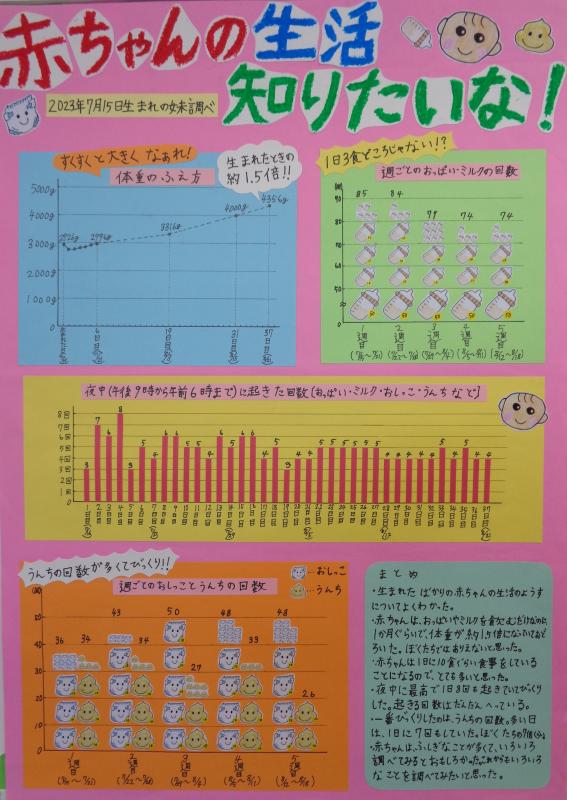 赤ちゃんの生活
知りたいな!
2023年7月15日生まれの妹調べ
すくすくと大きくなぁれ!
体重のふえ方
生まれたときの
約1.5倍!!
5000g
4000g
3000g
2000g
1000g
0
2926g
2996g
3316g
4000g
4356g
6日
19日
31日
37日
1日3食どころじゃない!?
週ごとのおっぱい・ミルクの回数
85
84
79
74
74
90
80
70
60
50
0
1週目
2週目
3週目
4週目
5週目
夜中(午後9時から午前6時まで)に起きた回数(おっぱい・ミルク・おしっこ・うんちなど)
8回
7回
6回
5回
4回
3回
2回
1回
0
うんちの回数が多くてびっくり!!
週ごとのおしっことうんちの回数
…おしっこ
…うんち
36 34
43 34
50 27
48 33
48 26
50
40
30
20
10
0
1週目
2週目
3週目
4週目
5週目
まとめ
・生まれたばかりの赤ちゃんの生活のようす
についてよくわかった。
・赤ちゃんは、おっぱいやミルクを飲むだけなのに、
1か月ぐらいで、体重が約1.5倍になっていておど
ろいた。ぼくたちではありえないと思った。
・赤ちゃんは1日に10食ぐらい食事をしている
ことになるので、とても多いと思った。
・夜中に最高で1日8回も起きていてびっくり
した。起きる回数はだんだんへっている。
・一番びっくりしたのは、うんちの回数。多い日
は、1日に7回もしていた。
・赤ちゃんは、ふしぎなことが多くて、いろいろ
調べてみるとおもしろかった。これからもいろいろ
なことを調べてみたいと思った。